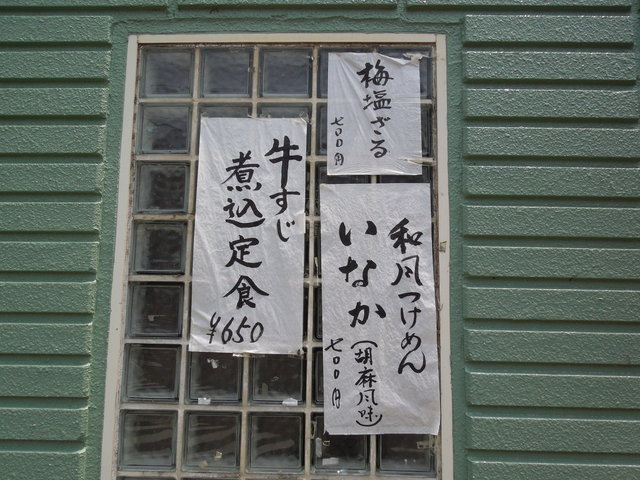 梅塩ざる
七〇〇円
和風つけめん
いなか(胡麻風味)
七〇〇円
牛すじ
煮込定食
¥650